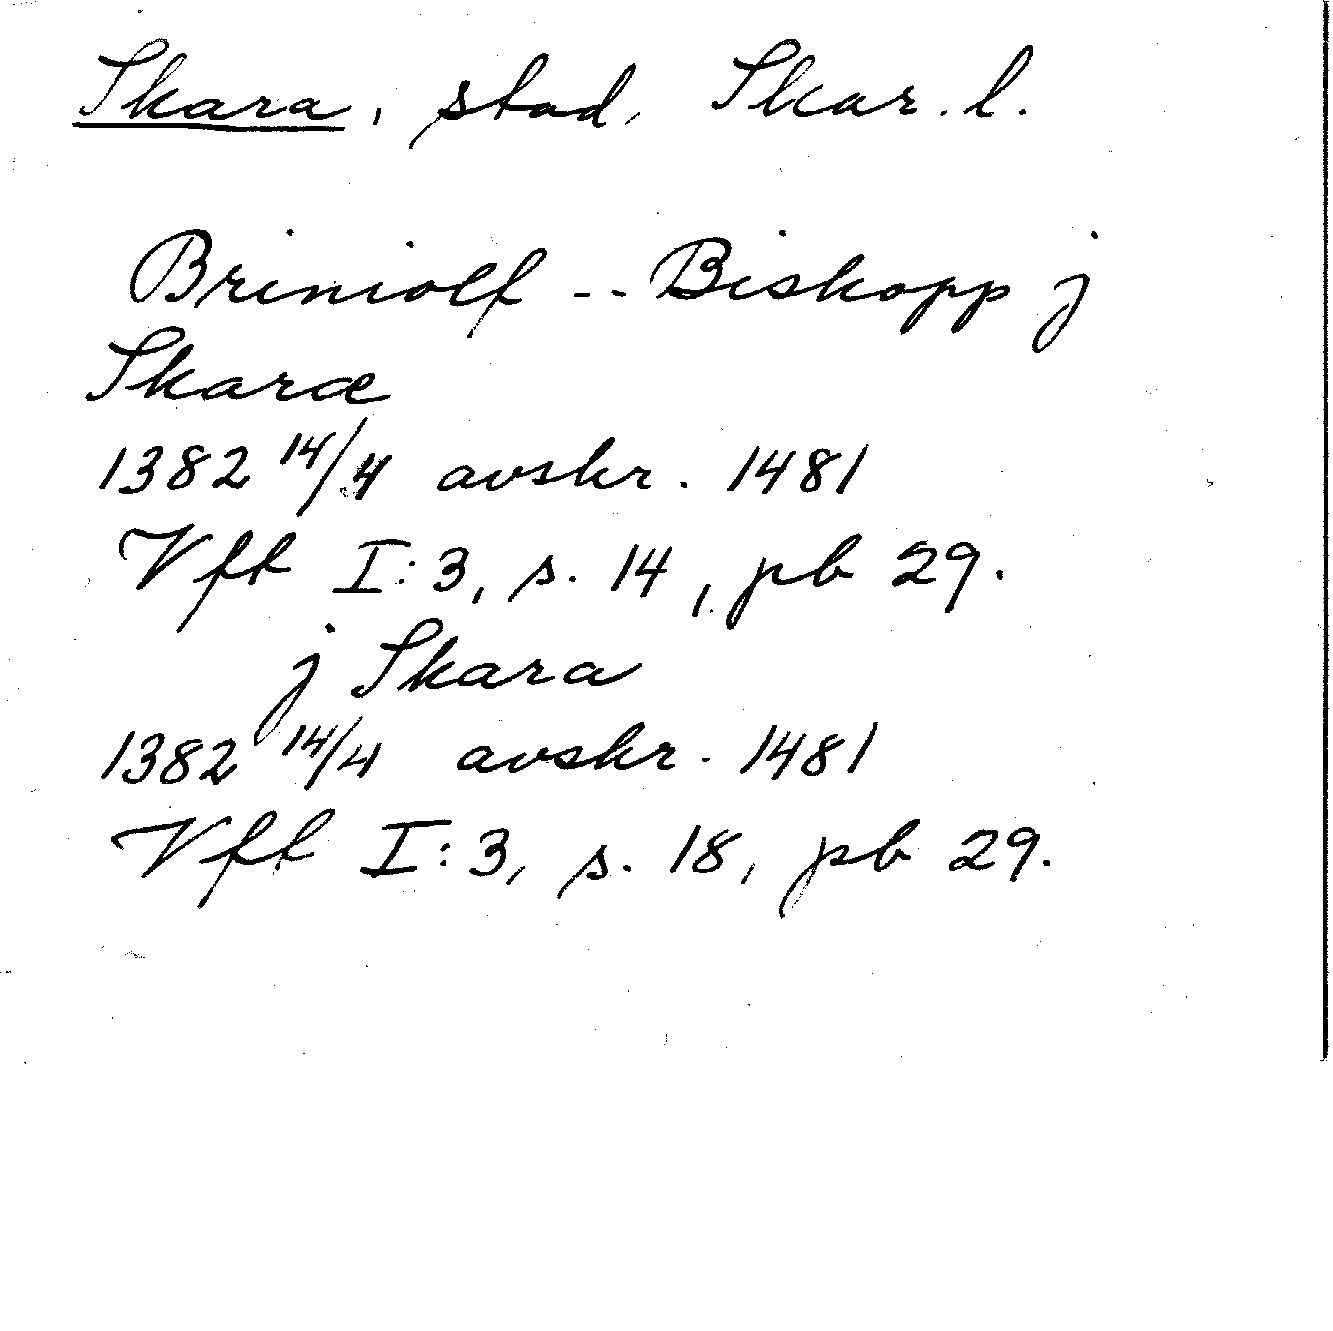 Skara, stad, Skar. l.
Briniolf -- Biskopp j
Skaræ
1382 14/4 avskr. 1481
Vft I:3, s. 14, pb 29.
j Skara
1382 14/4 avskr. 1481
Vft I:3, s. 18, pb 29.